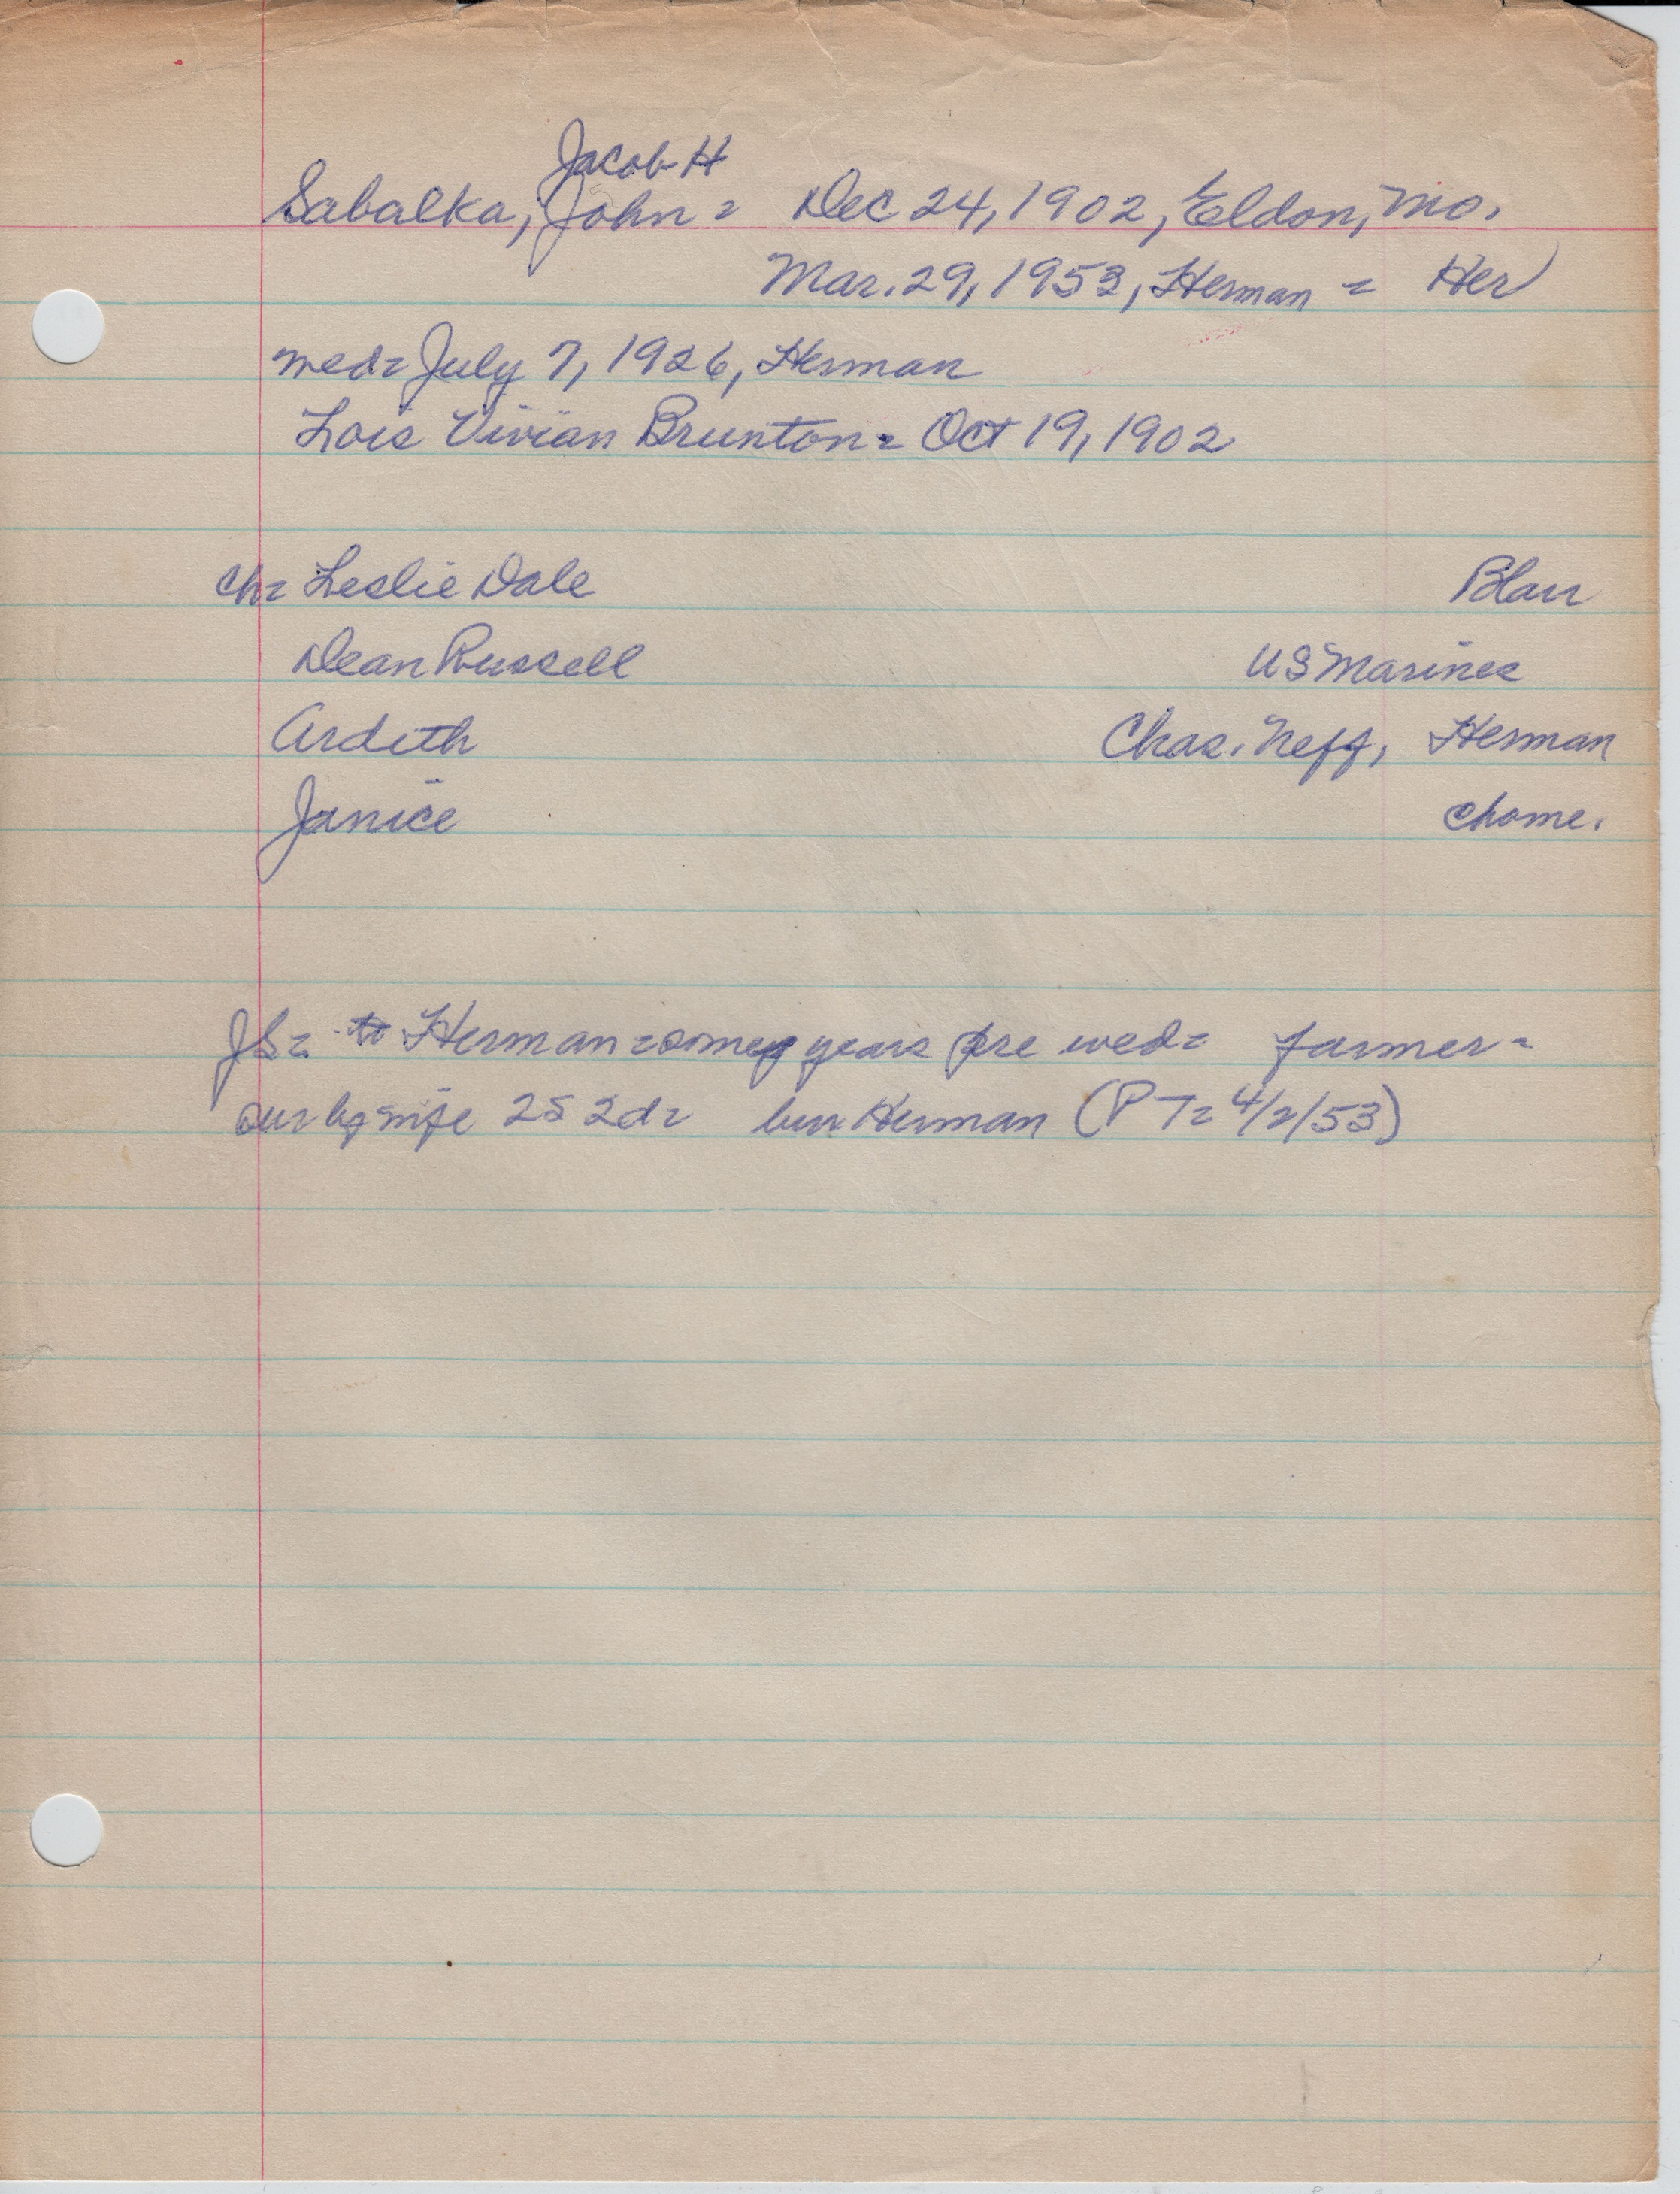 Jacob H
Sabalka, John = Dec 24, 1902, Eldon, Mo.
Mar. 29, 1953, Herman = Her
wed = July 7, 1926, Herman
Lois Vivian Brunton = Oct 19, 1902
ch = Leslie Dale Blair
Dean Russell US Marines
Ardith Chas. Neff, Herman
Janice @home.
JS = to Herman = some years pre wed = farmer =
sur by wife 2S 2d = bur Herman (PT = 4/2/53)